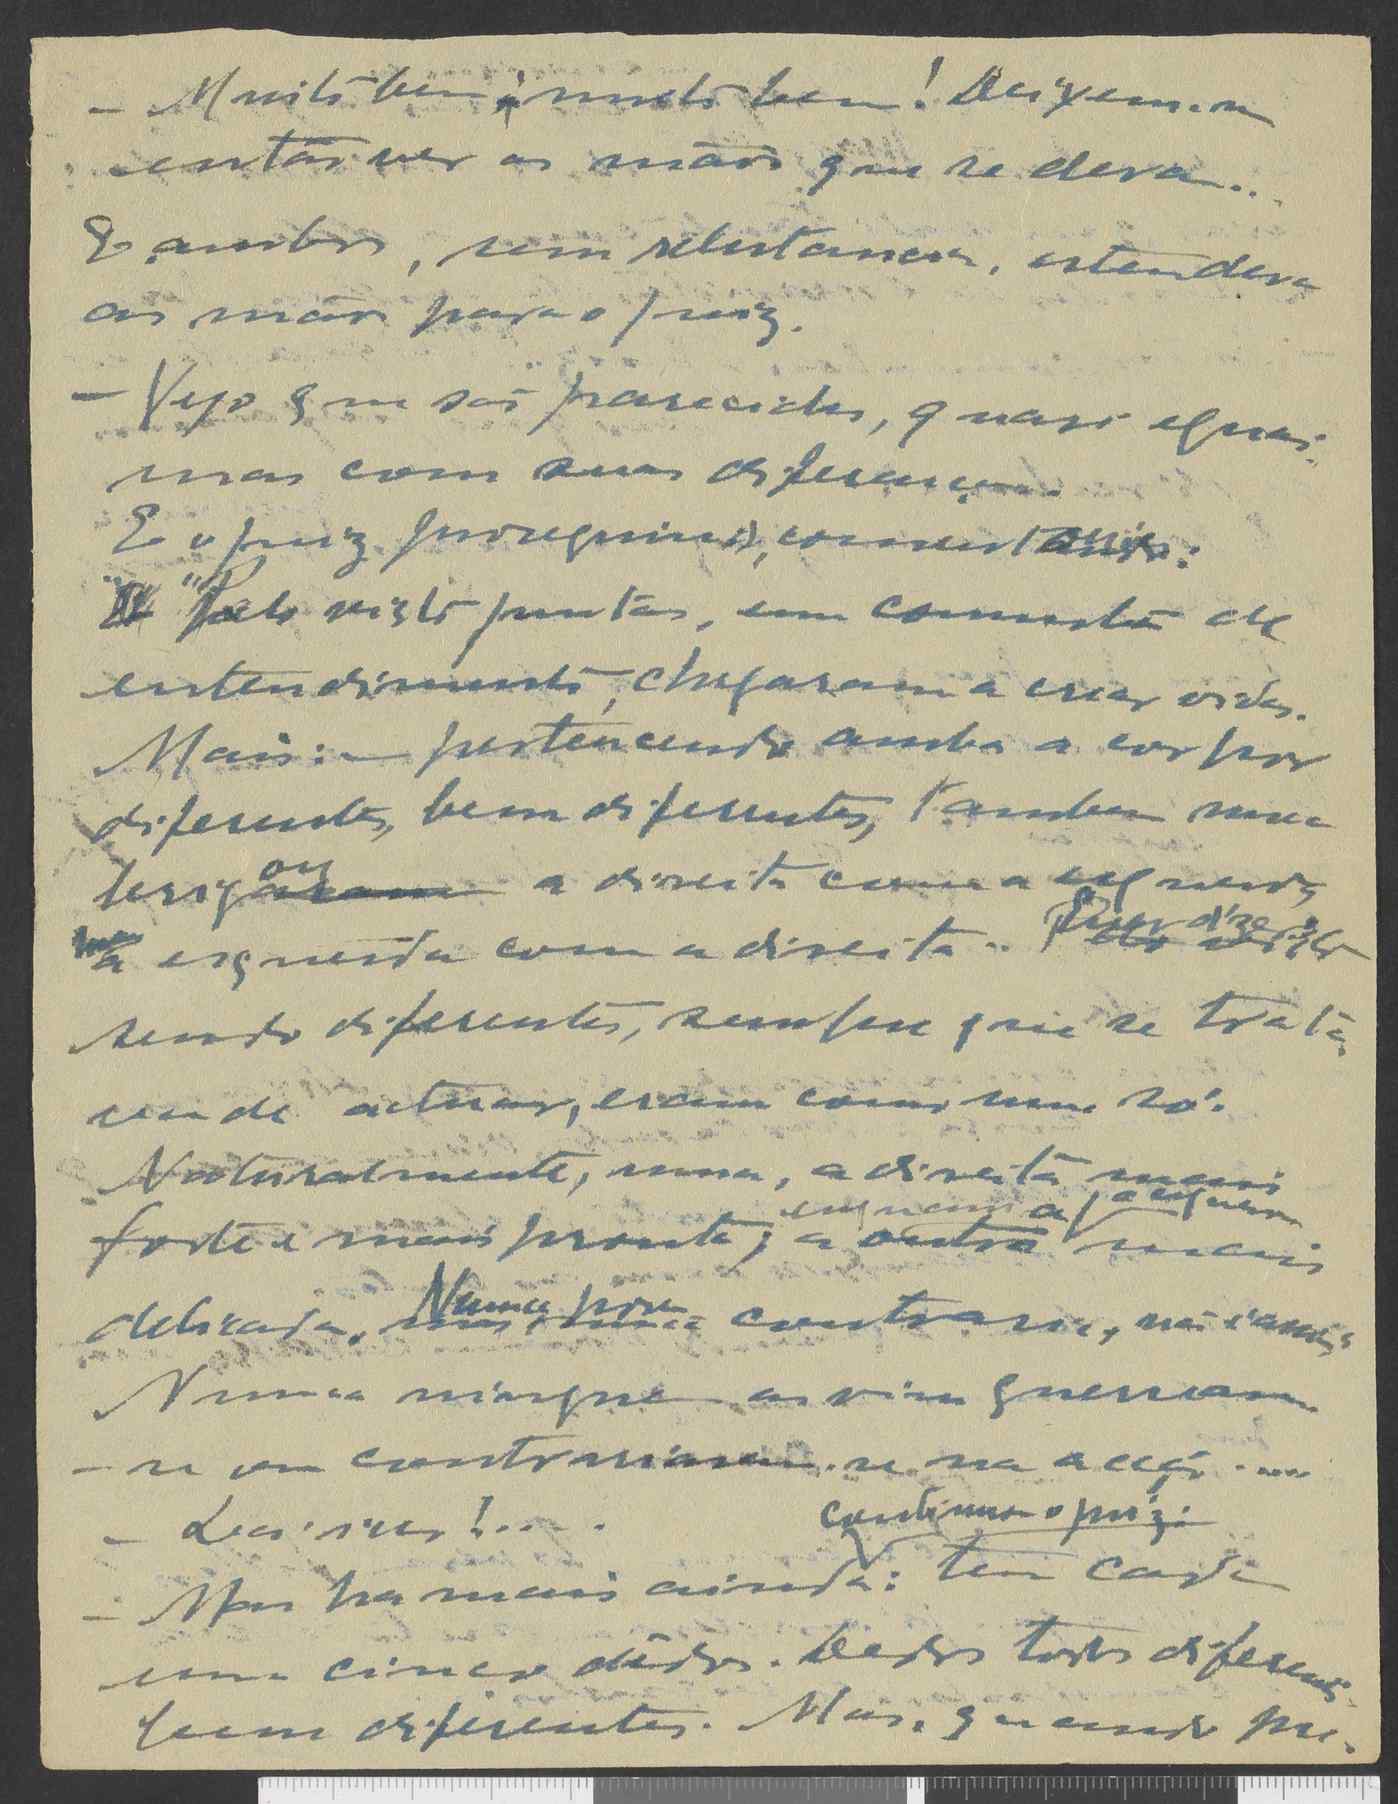 - Muito bem, muito bem! Deixem-m
então ver as mãos que se dera...
E ambos, sem relutancia, estendera
as mãos para o juiz.
- Vejo que são parecidas, quasi eguai.
mas com suas diferenças.
E o juiz proseguindo, comenta
"Pelo visto juntas, em comunhão de
entendimento, chegaram a crear vida.
Mais: - pertencendo ambas a corpos
diferentes, bem diferentes, tambem nunca
brigou a direita com a esquerda
a esquerda com a direita.. Quer dizer:
sendo diferentes, sempre que se trata
de actuar, eram como uma só.
Naturalmente, uma, a direita mais
forte e mais pronta; enquanto a esquerda mais
delicada. Nunca porem contraria,
Nunca ninguem as viu guerream
- se ou contrariarem-se na acção....
- Isso!....
continuou o juiz:
- Mas ha mais ainda: tem cada
uma cinco dêdos. Dedos todos diferentes
bem diferentes. Mas, quando pre-